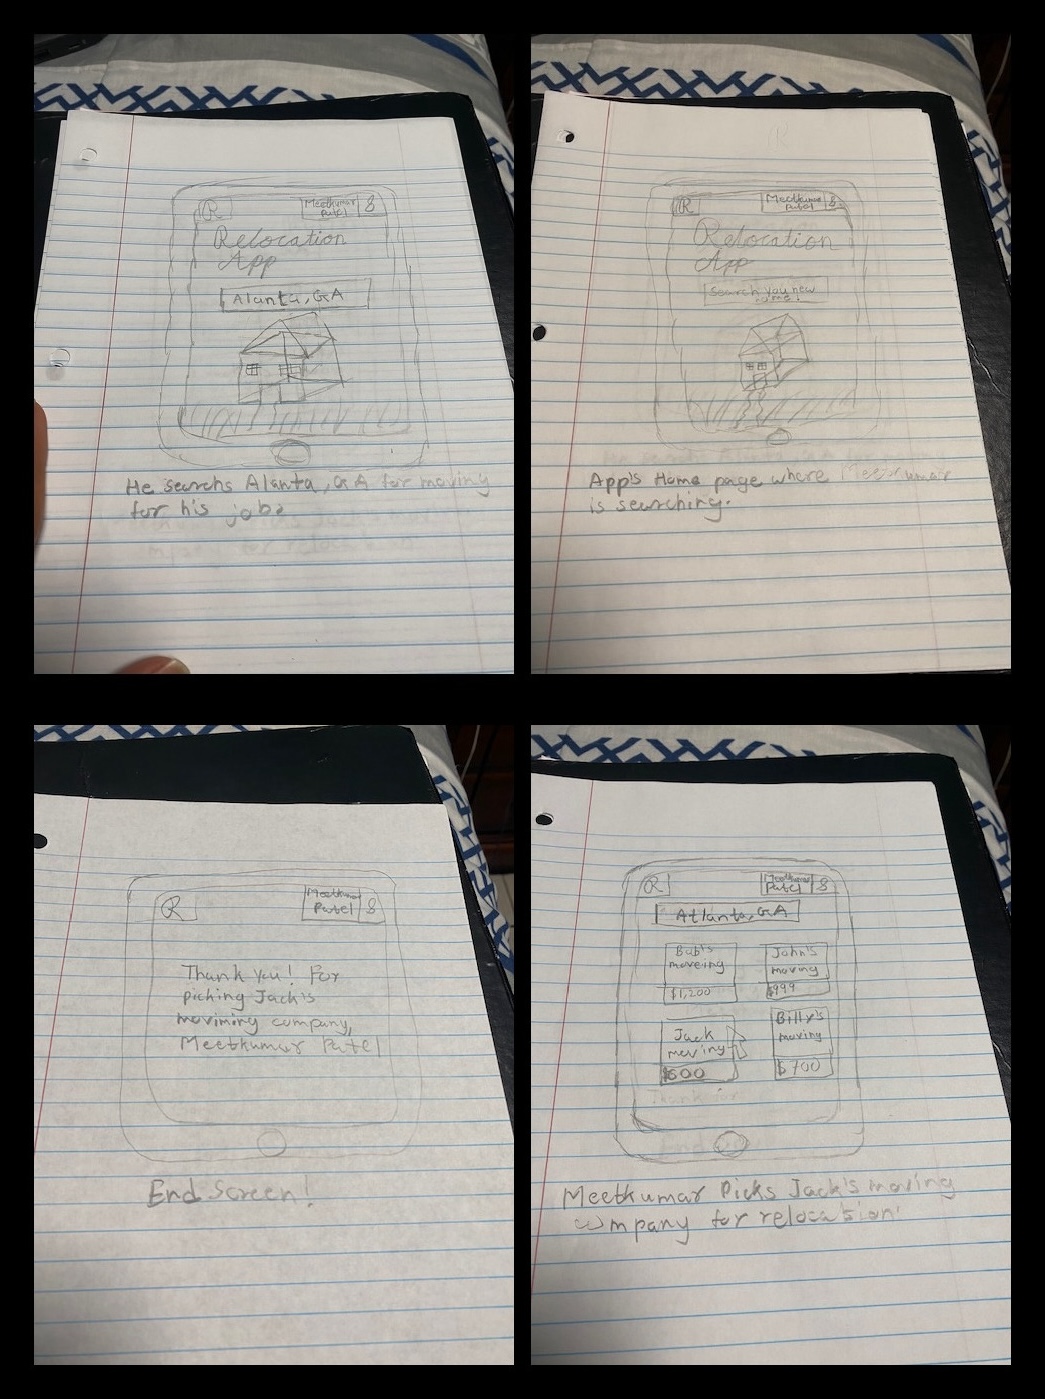 R
Meetkumar
Patel
8
Relocation
App
Alanta, GA
He searchs Alanta, GA for moving
for his job.
R
Meetkumar
Patel
8
Relocation
App
Search you new
home!
App's Home page where Meetkumar
is searching.
R
Meetkumar
Patel
8
Thank you! For
picking Jack's
moviming company,
Meetkumar Patel
End Screen!
R
Meetkumar
Patel
8
Atlanta, GA
Bob's
moveing
$1,200
John's
moving
$999
Jack
moving
$600
Billy's
moving
$700
Thank for
Meetkumar Picks Jack's moving
company for relocation.